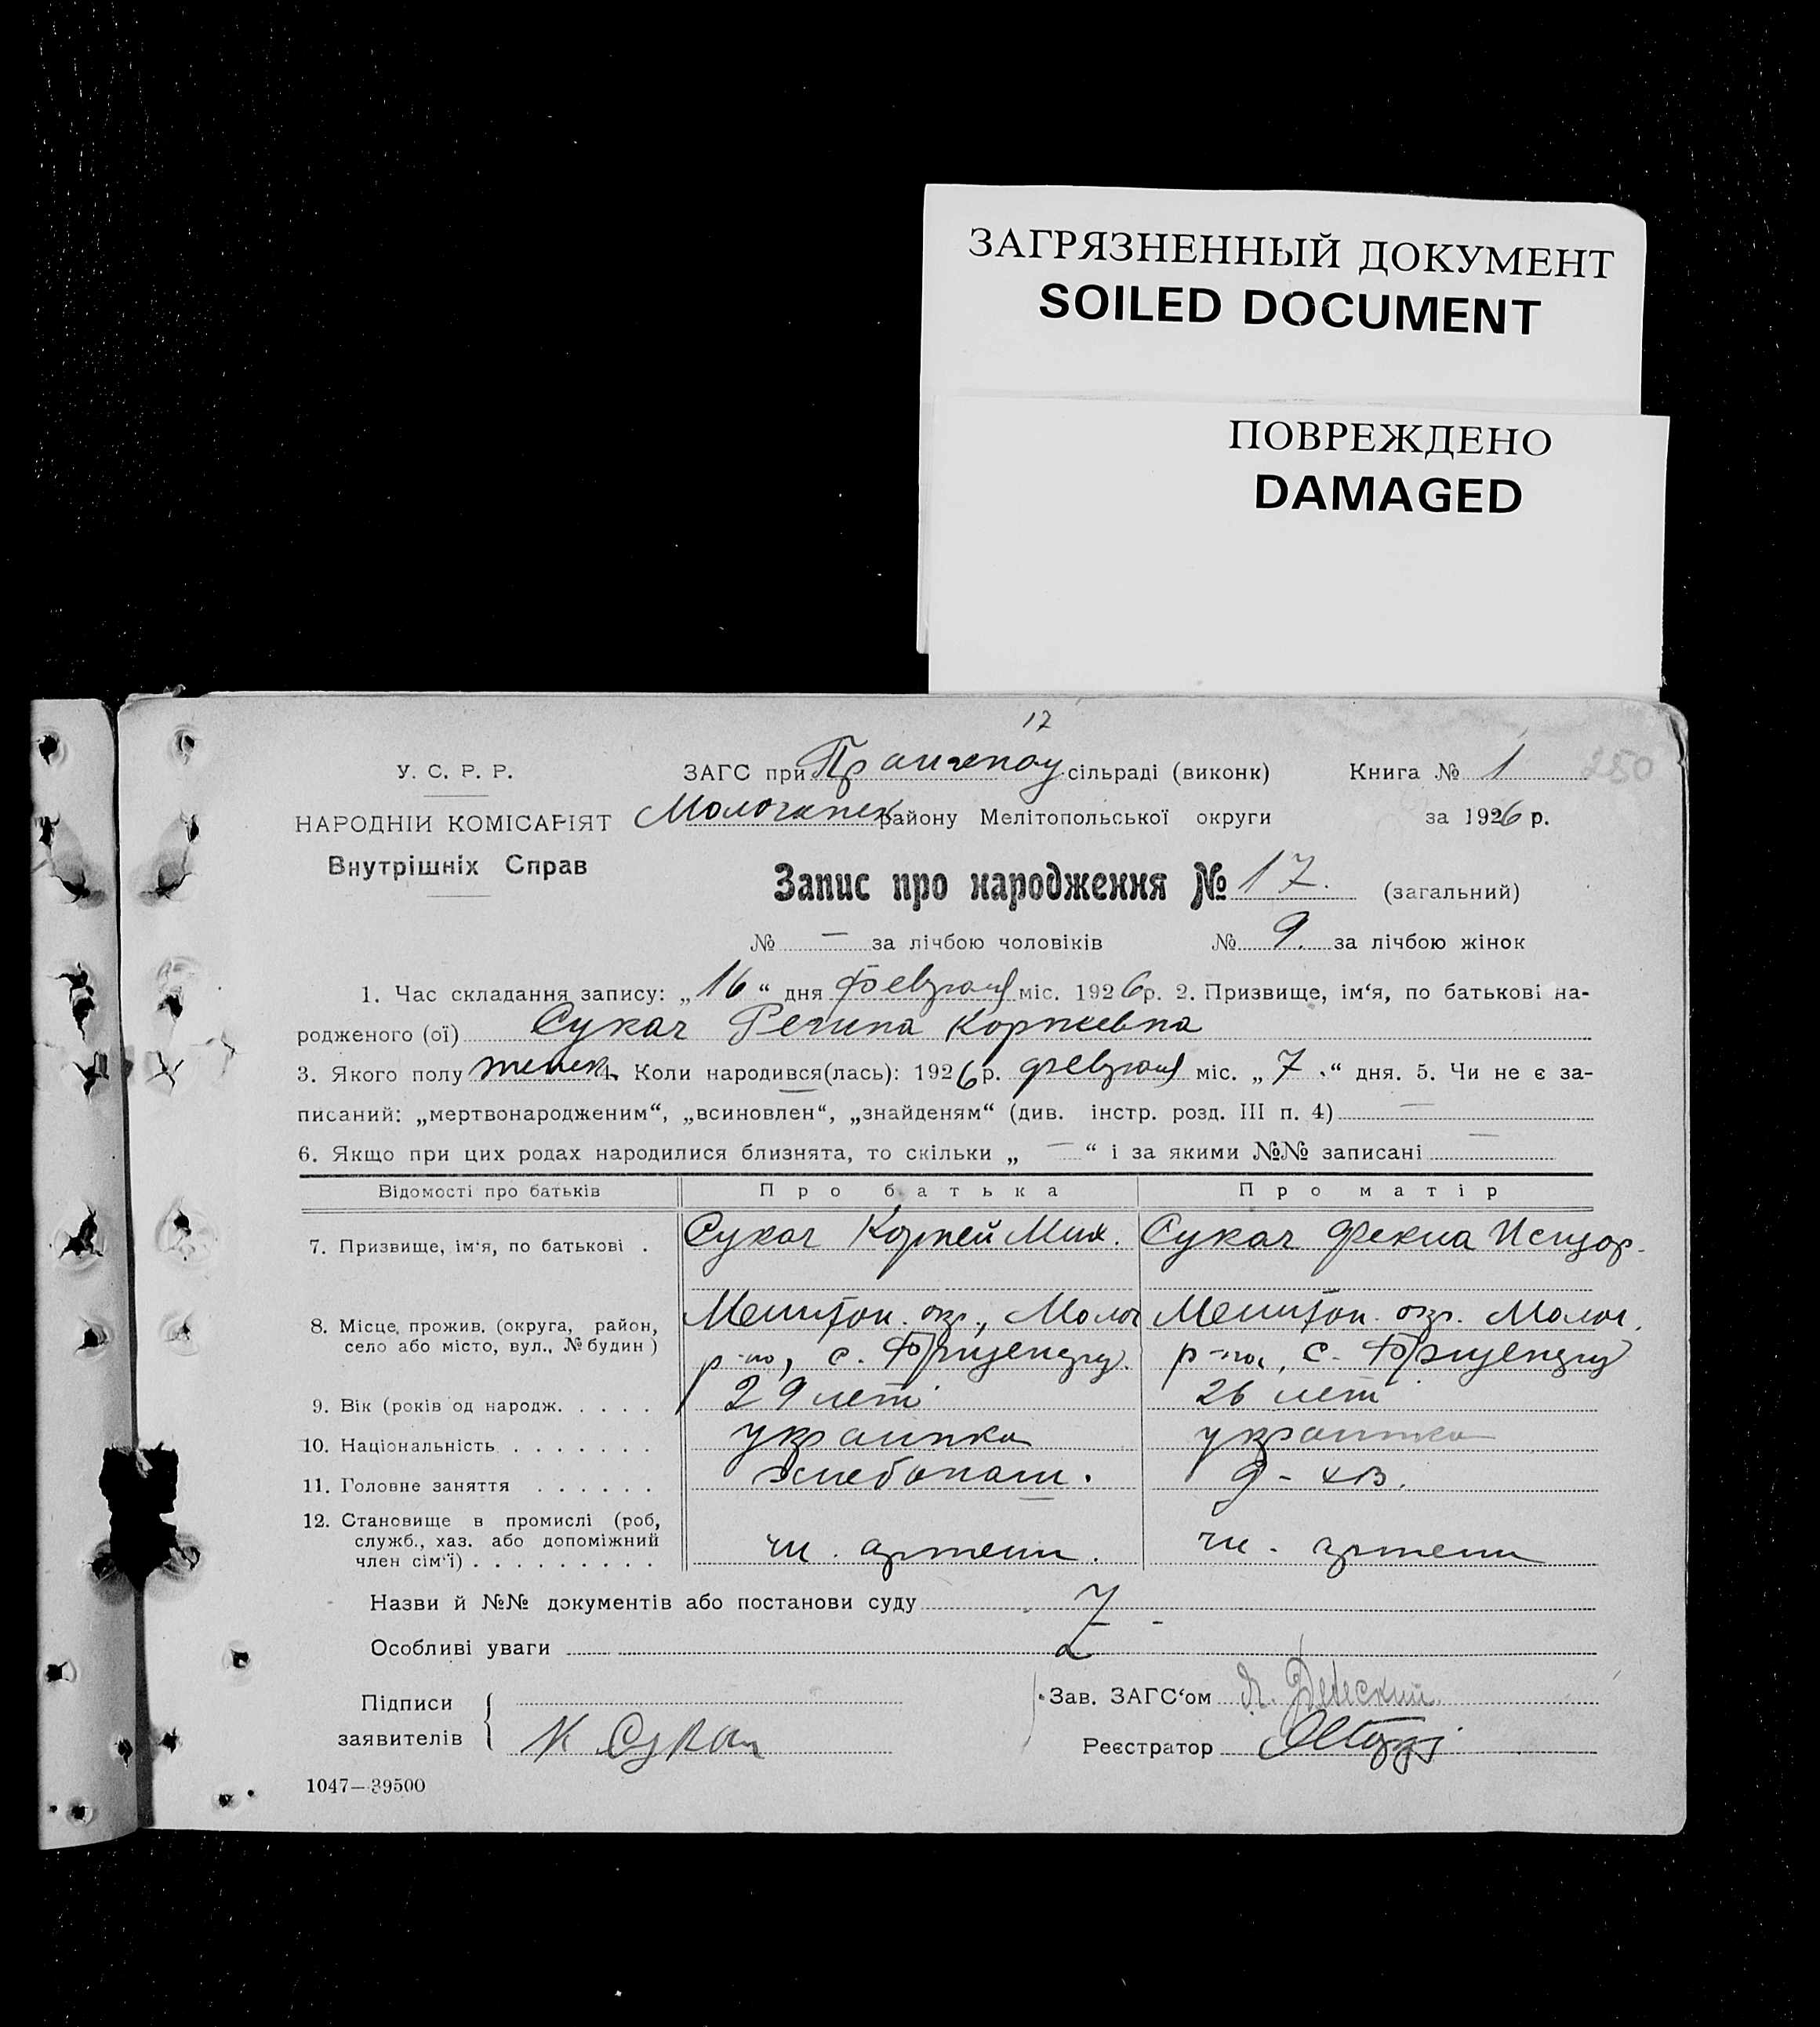 ЗАГРЯЗНЕННЫЙ ДОКУМЕНТ
SOILED DOCUMENT
ПОВРЕЖДЕНО
DAMAGED
17
У. С. Р. Р.
ЗАГС при Пришепау сільраді (виконк)
Книга № 1
280
НАРОДНІЙ КОМІСАРІЯТ
Молочанск району Мелітопольської округи
за 1926 р.
Внутрішніх Справ
Запис про народження № 17. (загальний)
№ — за лічбою чоловіків № 9. за лічбою жінок
1. Час складання запису: „16“ дня февраля міс. 1926 р. 2. Призвище, ім‘я, по батькові на-
родженого (ої) Сукач Регина Корнеевна
3. Якого полу женск. 4. Коли народився(лась): 1926 р. февраля міс. „7.“ дня. 5. Чи не є за-
писаний: „мертвонародженим“, „всиновлен“, „знайденям“ (див. інстр. розд. III п. 4) —
6. Якщо при цих родах народилися близнята, то скільки „—“ і за якими №№ записані —
Відомості про батьків Про батька Про матір
7. Призвище, ім‘я, по батькові . Сукач Корней Мих. Сукач Фекла Исидор.
8. Місце прожив. (округа, район, Мелитоп. окр., Молоч Мелитоп. окр. Молоч.
село або місто, вул., № будин ) р-на, с. р-на, с.
9. Вік (років од народж. . . . . . 29 лет 26 лет
10. Національність . . . . . . . украинка украинка
11. Головне заняття . . . . . . хлебопаш. д-хв.
12. Становище в промислі (роб,
служб., хаз. або допоміжний
член сім‘ї) . . . . . . . . . чл. артели. чл. артели
Назви й №№ документів або постанови суду
Особливі уваги
Підписи
заявителів К Сукач
Зав. ЗАГС‘ом
Реєстратор
1047—39500